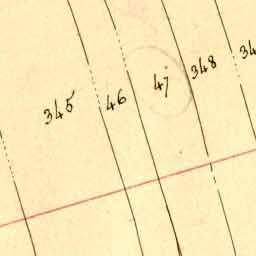 345 46 47 348 34